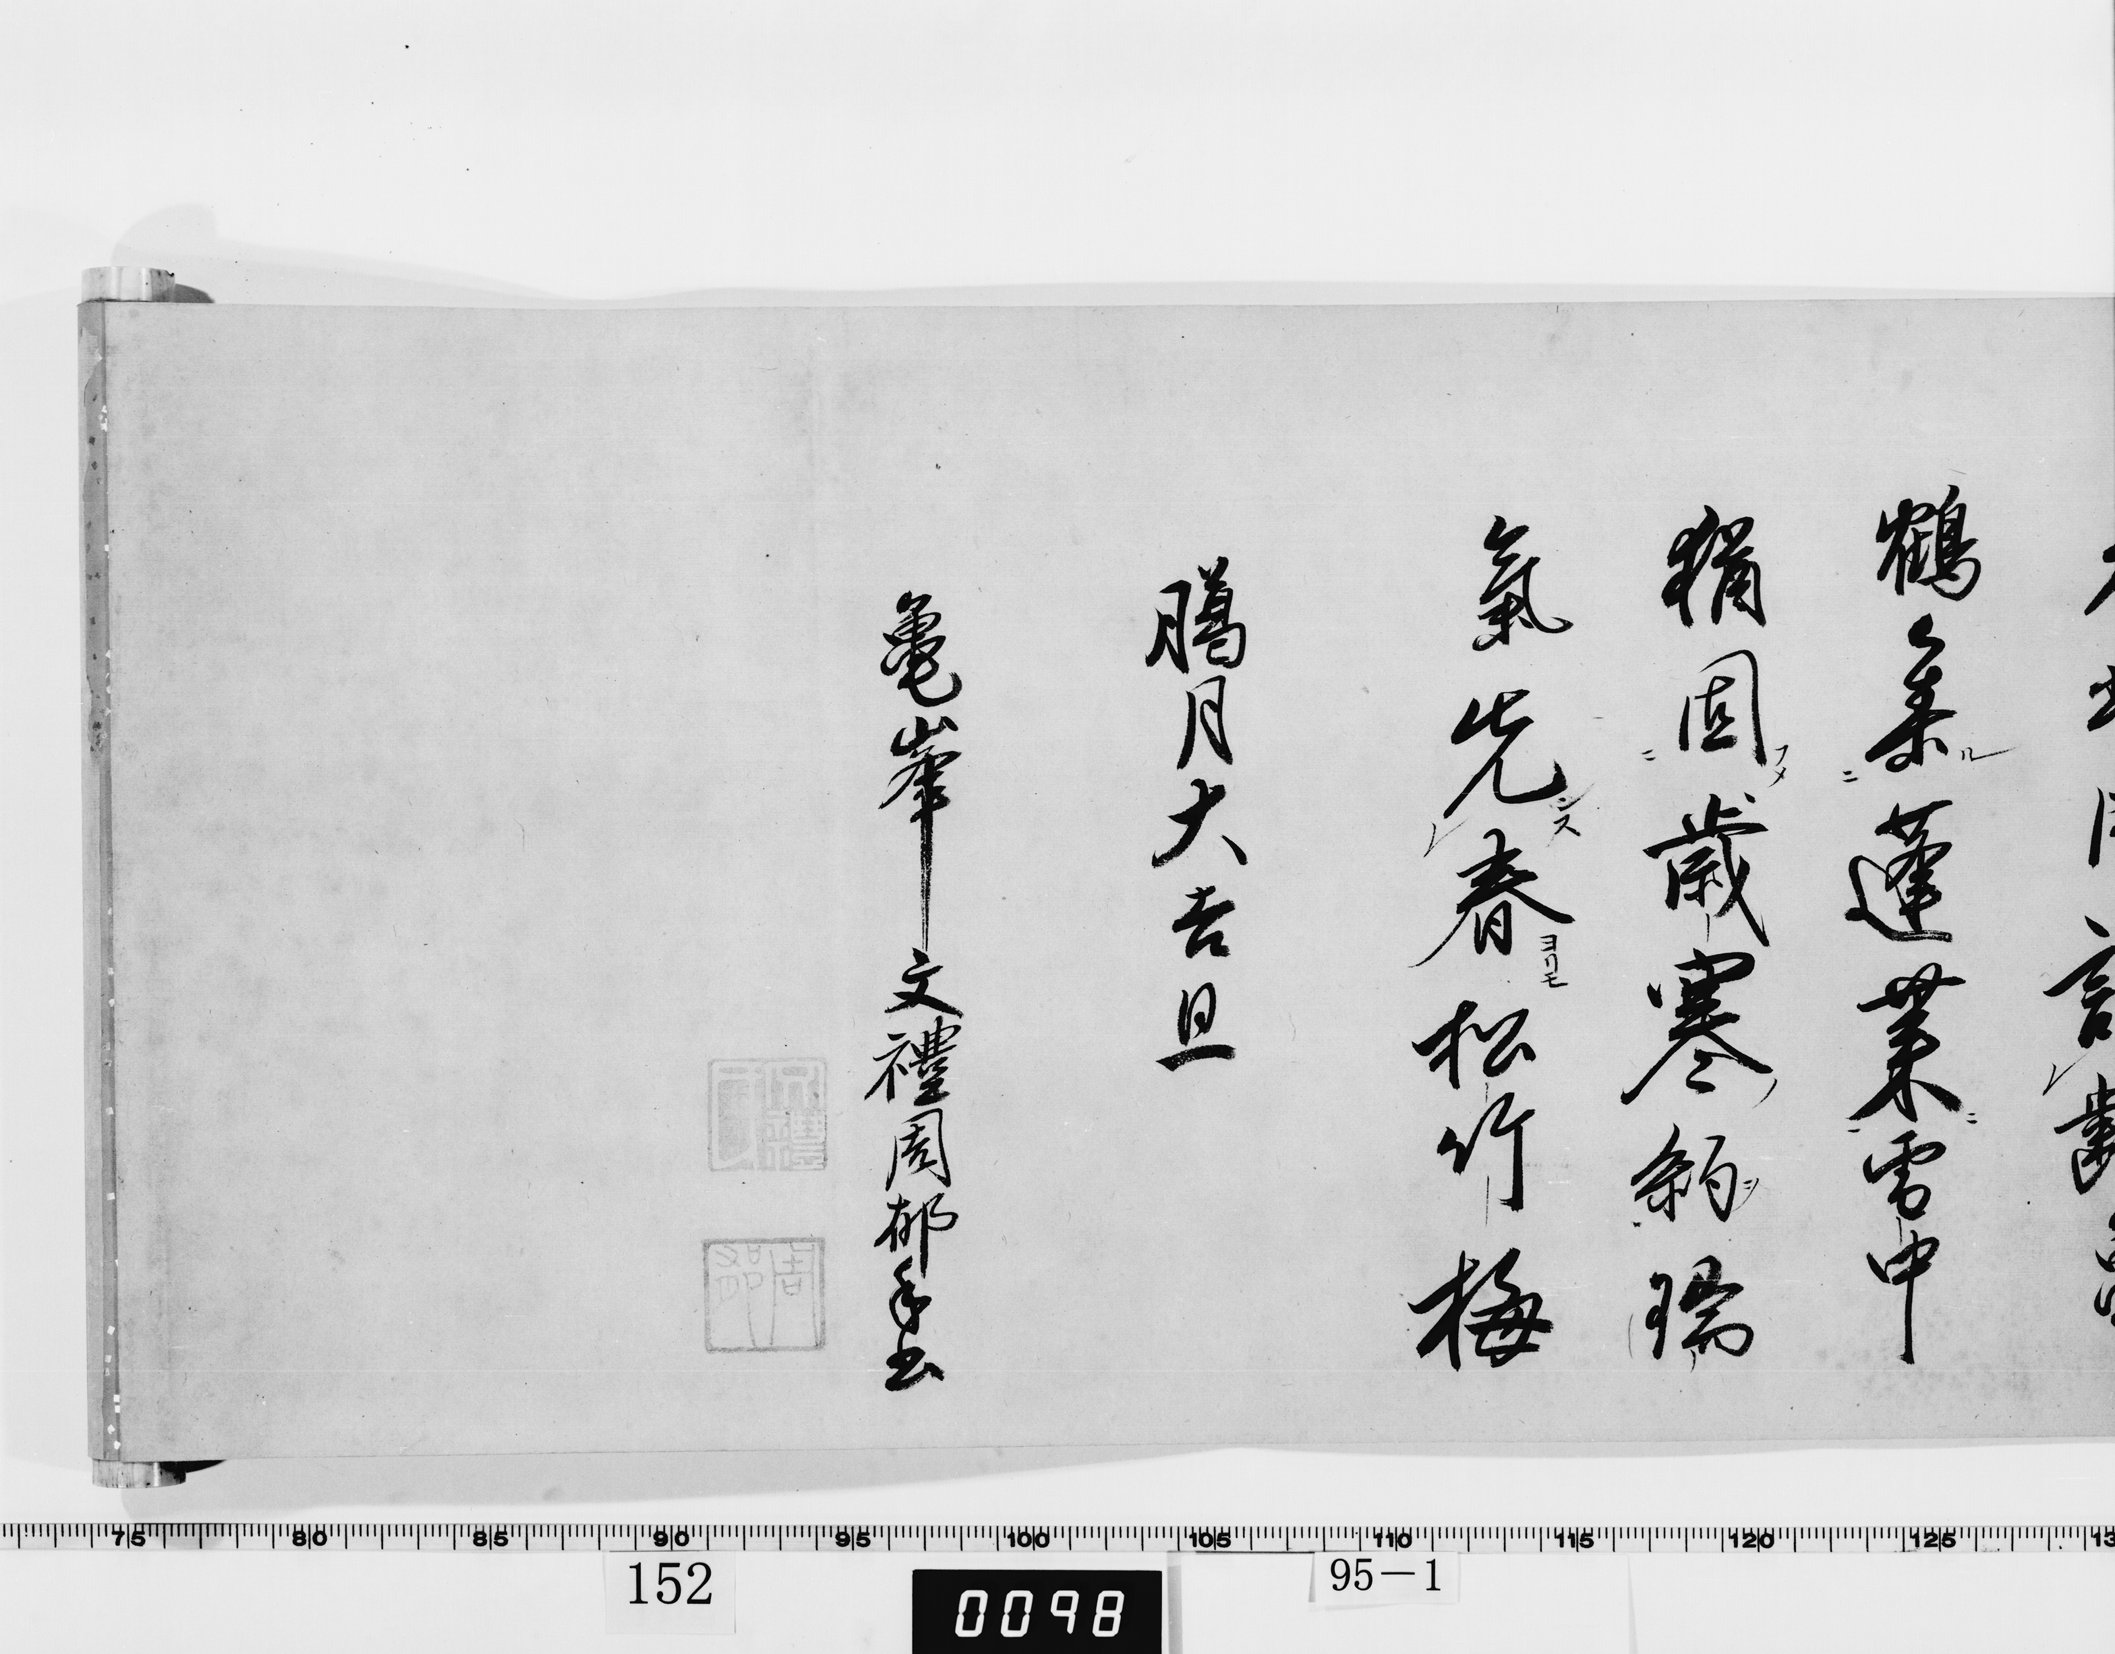 鶴蓬莱雪中
猶固歳寒約瑞
氣先春ヨリモ松竹梅
臈月大吉旦
亀峯文禮周郁手書
文禮
周郁
75 80 85 90 95 100 105 110 115 120 125 13
152
0098
95-1